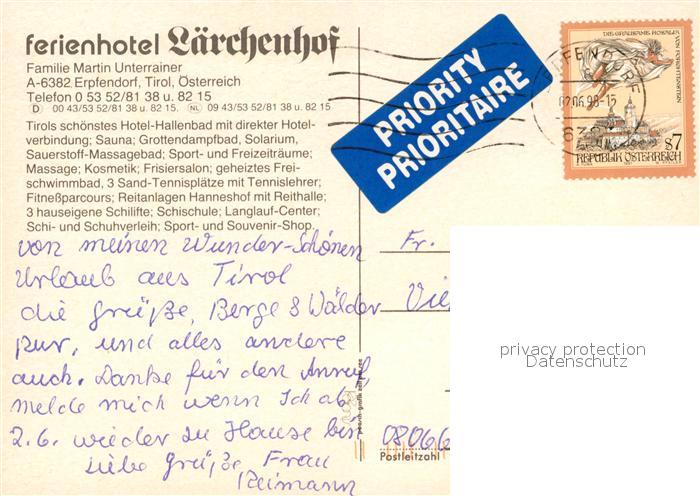 ferienhotel Lärchenhof
Familie Martin Unterrainer
A-6382 Erpfendorf, Tirol, Österreich
Telefon 0 53 52/81 38 u. 82 15
D 00 43/53 52/81 38 u. 82 15. NL 09 43/53 52/81 38 u. 82 15
Tirols schönstes Hotel-Hallenbad mit direkter Hotel-
verbindung; Sauna; Grottendampfbad, Solarium,
Sauerstoff-Massagebad; Sport- und Freizeiträume;
Massage; Kosmetik; Frisiersalon; geheiztes Frei-
schwimmbad, 3 Sand-Tennisplätze mit Tennislehrer;
Fitneßparcours; Reitanlagen Hanneshof mit Reithalle;
3 hauseigene Schilifte; Schischule; Langlauf-Center;
Schi- und Schuhverleih; Sport- und Souvenir-Shop.
von meinen Wunder-Schönen
Urlaub aus Tirol
die Grüße, Berge & Wälder
pur, und alles andere
auch. Danke für den Anruf,
melde mich wenn Ich ab
2.6. wieder zu Hause bin
Liebe Grüße Frau
Reimann
PRIORITY
PRIORITAIRE
DIE GRAUSAME ROSALIA
VON FORCHTENSTEIN
S7
REPUBLIK ÖSTERREICH
02.06.98-15
Fr.
privacy protection
Datenschutz
Postleitzahl